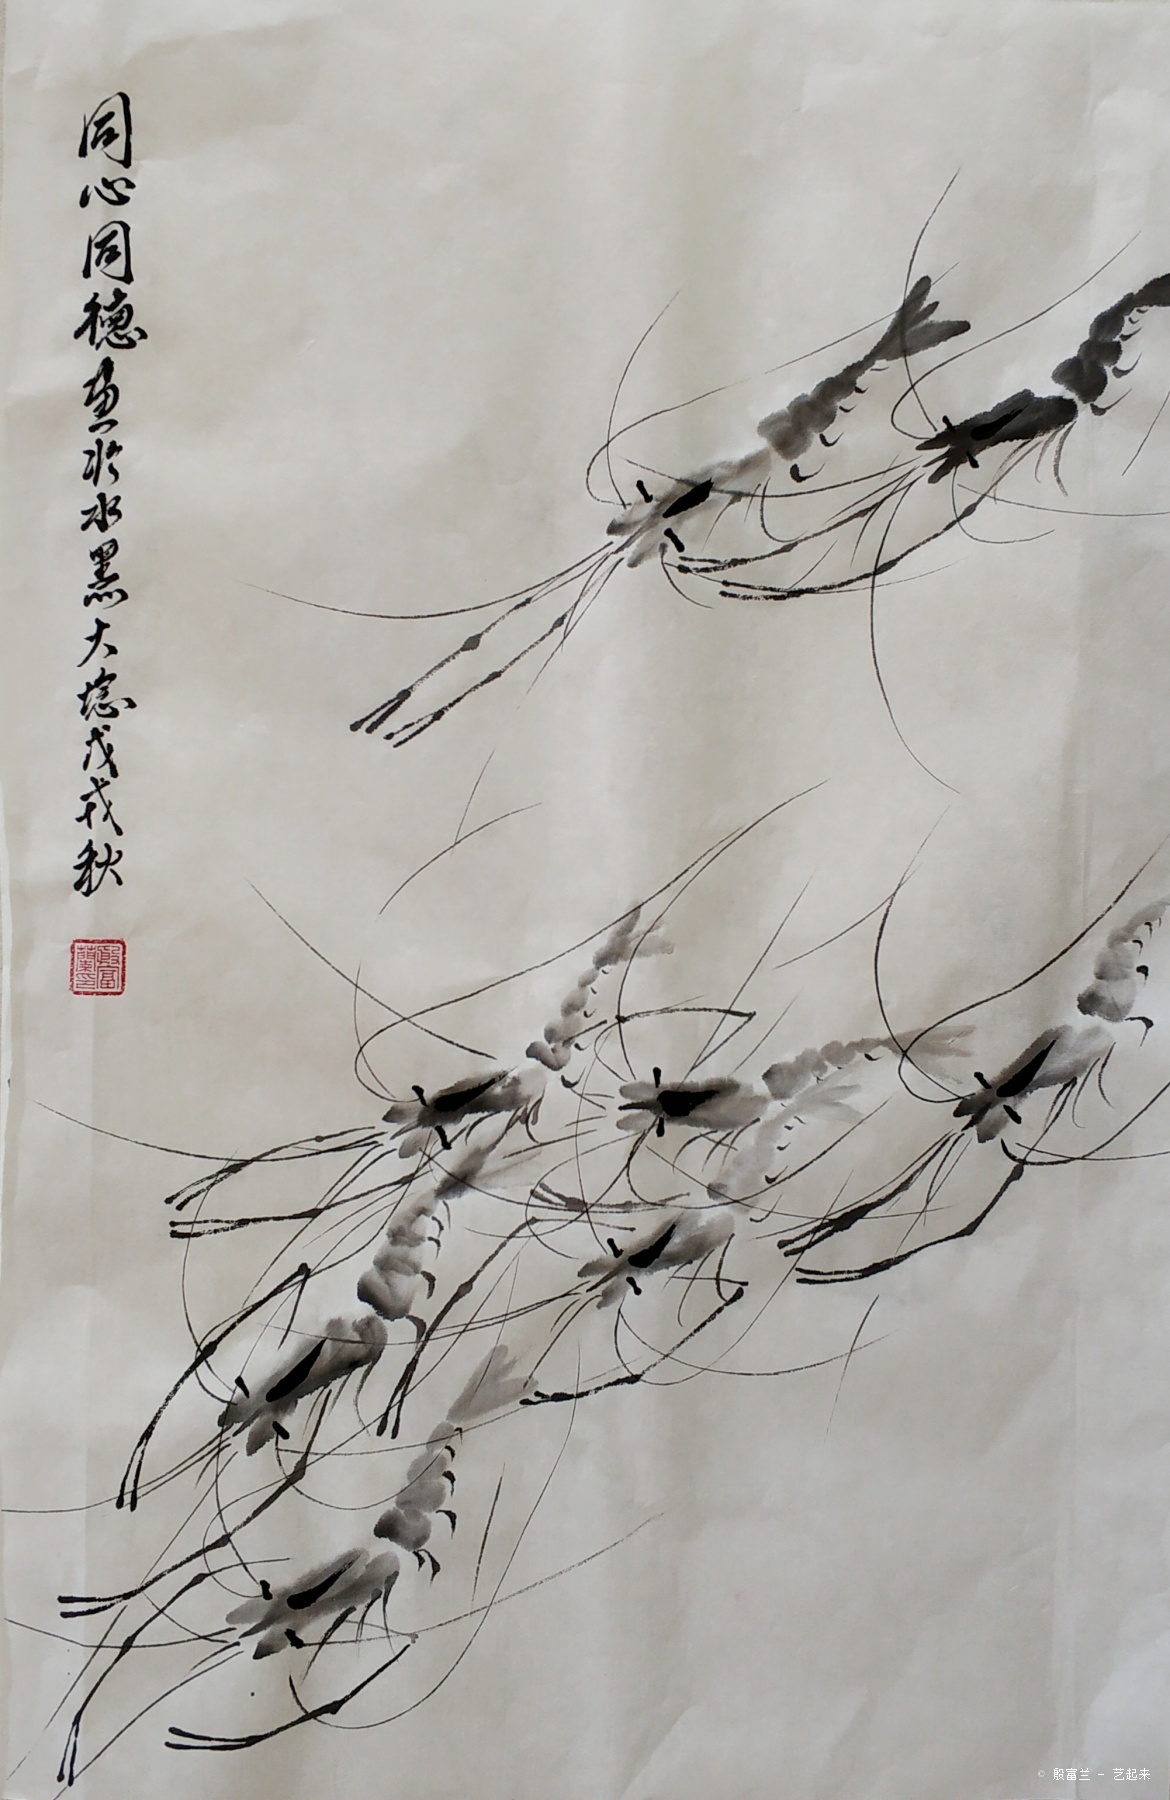 同心同德画於水墨大埝戊戌秋
殷富蘭印
© 殷富兰 - 艺起来